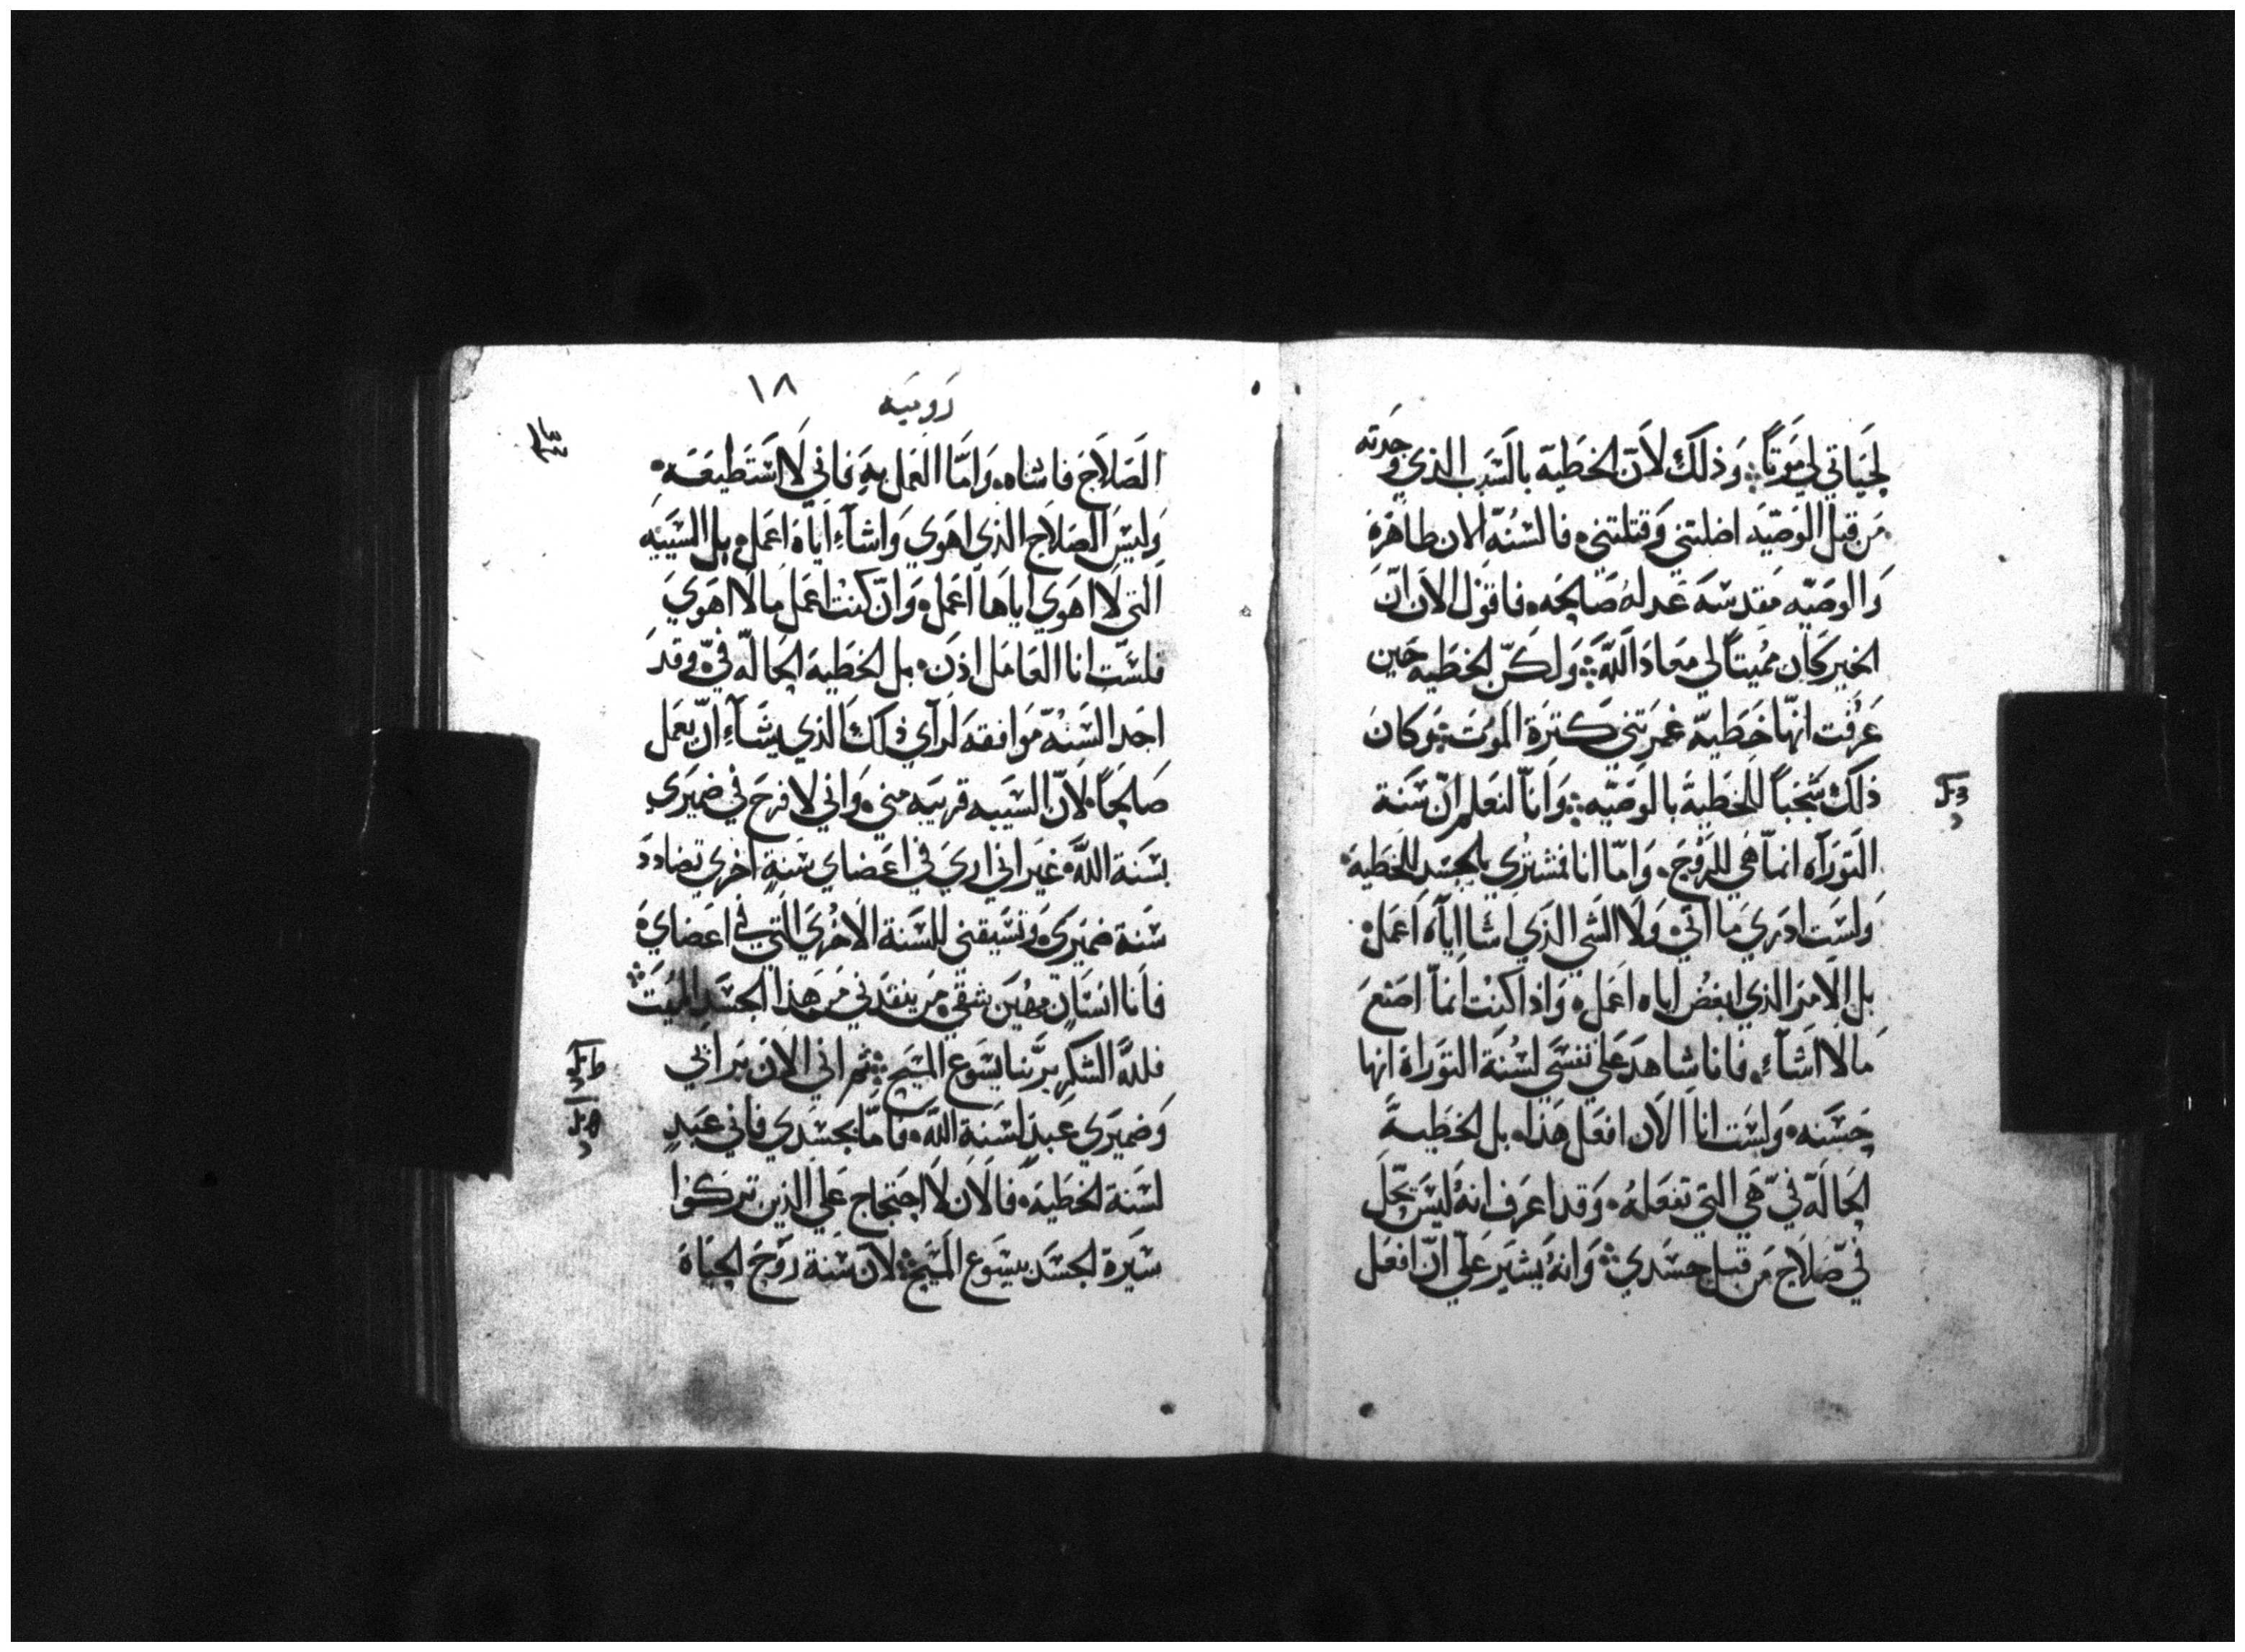 لحَياتي لي مَوتاً وَذلكَ لاَنّ الخطَيّة بالسَبب الذي وَجدته
مَن قبل الوَصّيَه اضلتني وَقتلتني فالسُنّة الان طاهَرَة
وَالوصَيّه مَقدسَه عَدله صَالحَه فاقول الان ان
الخير كَان مميتاً لي مَعاذ اللَّه وَلكنّ الخطَيه حَين
عَرفت انهّا خَطَيّه غمرتني كَترَة المَوت وَكانَ
ذلكَ شجباً للخَطَيةَ بالوَصَيّه وَانّا لنَعلم انّ سَنَة
التَورَاه انماّ هَي للرَوْحَ وَامّا انا فمشترَي بالجَسَد للخَطيةَ
وَلسَت ادَرَي مَا اتَي وَلاَ الشَي الذَي اشا اياَه اَعَمل
بل الاَمَر الذَي ابغض اياه اعَمل وَاذا كنت انماّ اصَنعَ
مَا لاَ اشَآء فانا شاهدَ عَلي نفسَي لسُنَة التوَرَاة انها
حَسَنه وَلسَت اناَ الاَن افعَل هَذا بل الخطَيةَ
الحَالّة فيّ هَي التَي تفعَلهُ وَقد اعَرف انهُ ليسَ يحَلّ
فيّ صَلاَح مَن قبل جسَدي وَانهُ يشيَر عَليّ انّ افعَل
١٨
رَوميَه
الصَلاَحَ فاشاه وَامَّا العَمل بهِ فاني لاَ اسَتَطيعَهَ
وَليسَ الصَلاَح الذي اهَوي وَاشآء اياَّهَ اعَمل بل السَيّيه
التي لاَ اهَوي اياهَا اعَمل وَانّ كنت اعَمل مالاَ اهَوي
فلسَت انا العَامَل اذن بل الخطَية الحَالّه فيّ وَقدَ
اجَد السَنّة مَوافقه لرَآي ذلكَ الذي يشَآء انّ يعَمل
صَالحَاً لاَنّ السَيّيه قريَبه مني وَاني لافرحَ في ضميَرَي
بسَنَة اللَّه غيَر اني ارَي في اعَضاي سَنةٍ اخرَي تضادد
سَنَة ضميَرَي وَتسَيقني للسَنة الاَخرَي التي في اعَضايَ
فاَنا انسَان مهَين شقي مَن ينقذَني مَن هَذا الجَسَدِ الميَتَ
فللهّ الشكَر برَبَّنا يسَوع المسَيح ثم اني الاَن برَآيي
وَضميَرَي عَبدَ لسَنة اللَّه فامَّا بجَسَدي فاني عَبَد
لسَنة الخطَيَة فالاَن لاَ احَتجاج عَلي الذين ترَكوَا
سَيَرة الجسَدَ بيسَوع المسَيح لاَن سَنة رَوْحَ الحَيَاةَ